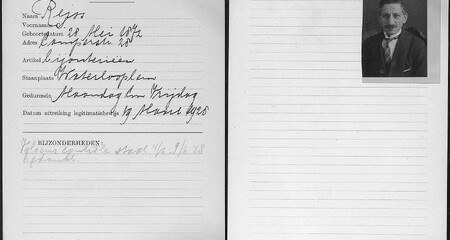 Naam Rejos
Voornamen
Geboortedatum 28 Mei 1872
Adres Camperstr 28
Artikel bijouterieën
Staanplaats Waterlooplein
Gedurende Maandag t/m Vrijdag
Datum uitreiking legitimatiebewijs 19 Maart 1928
BIJZONDERHEDEN
Volgens controle staat